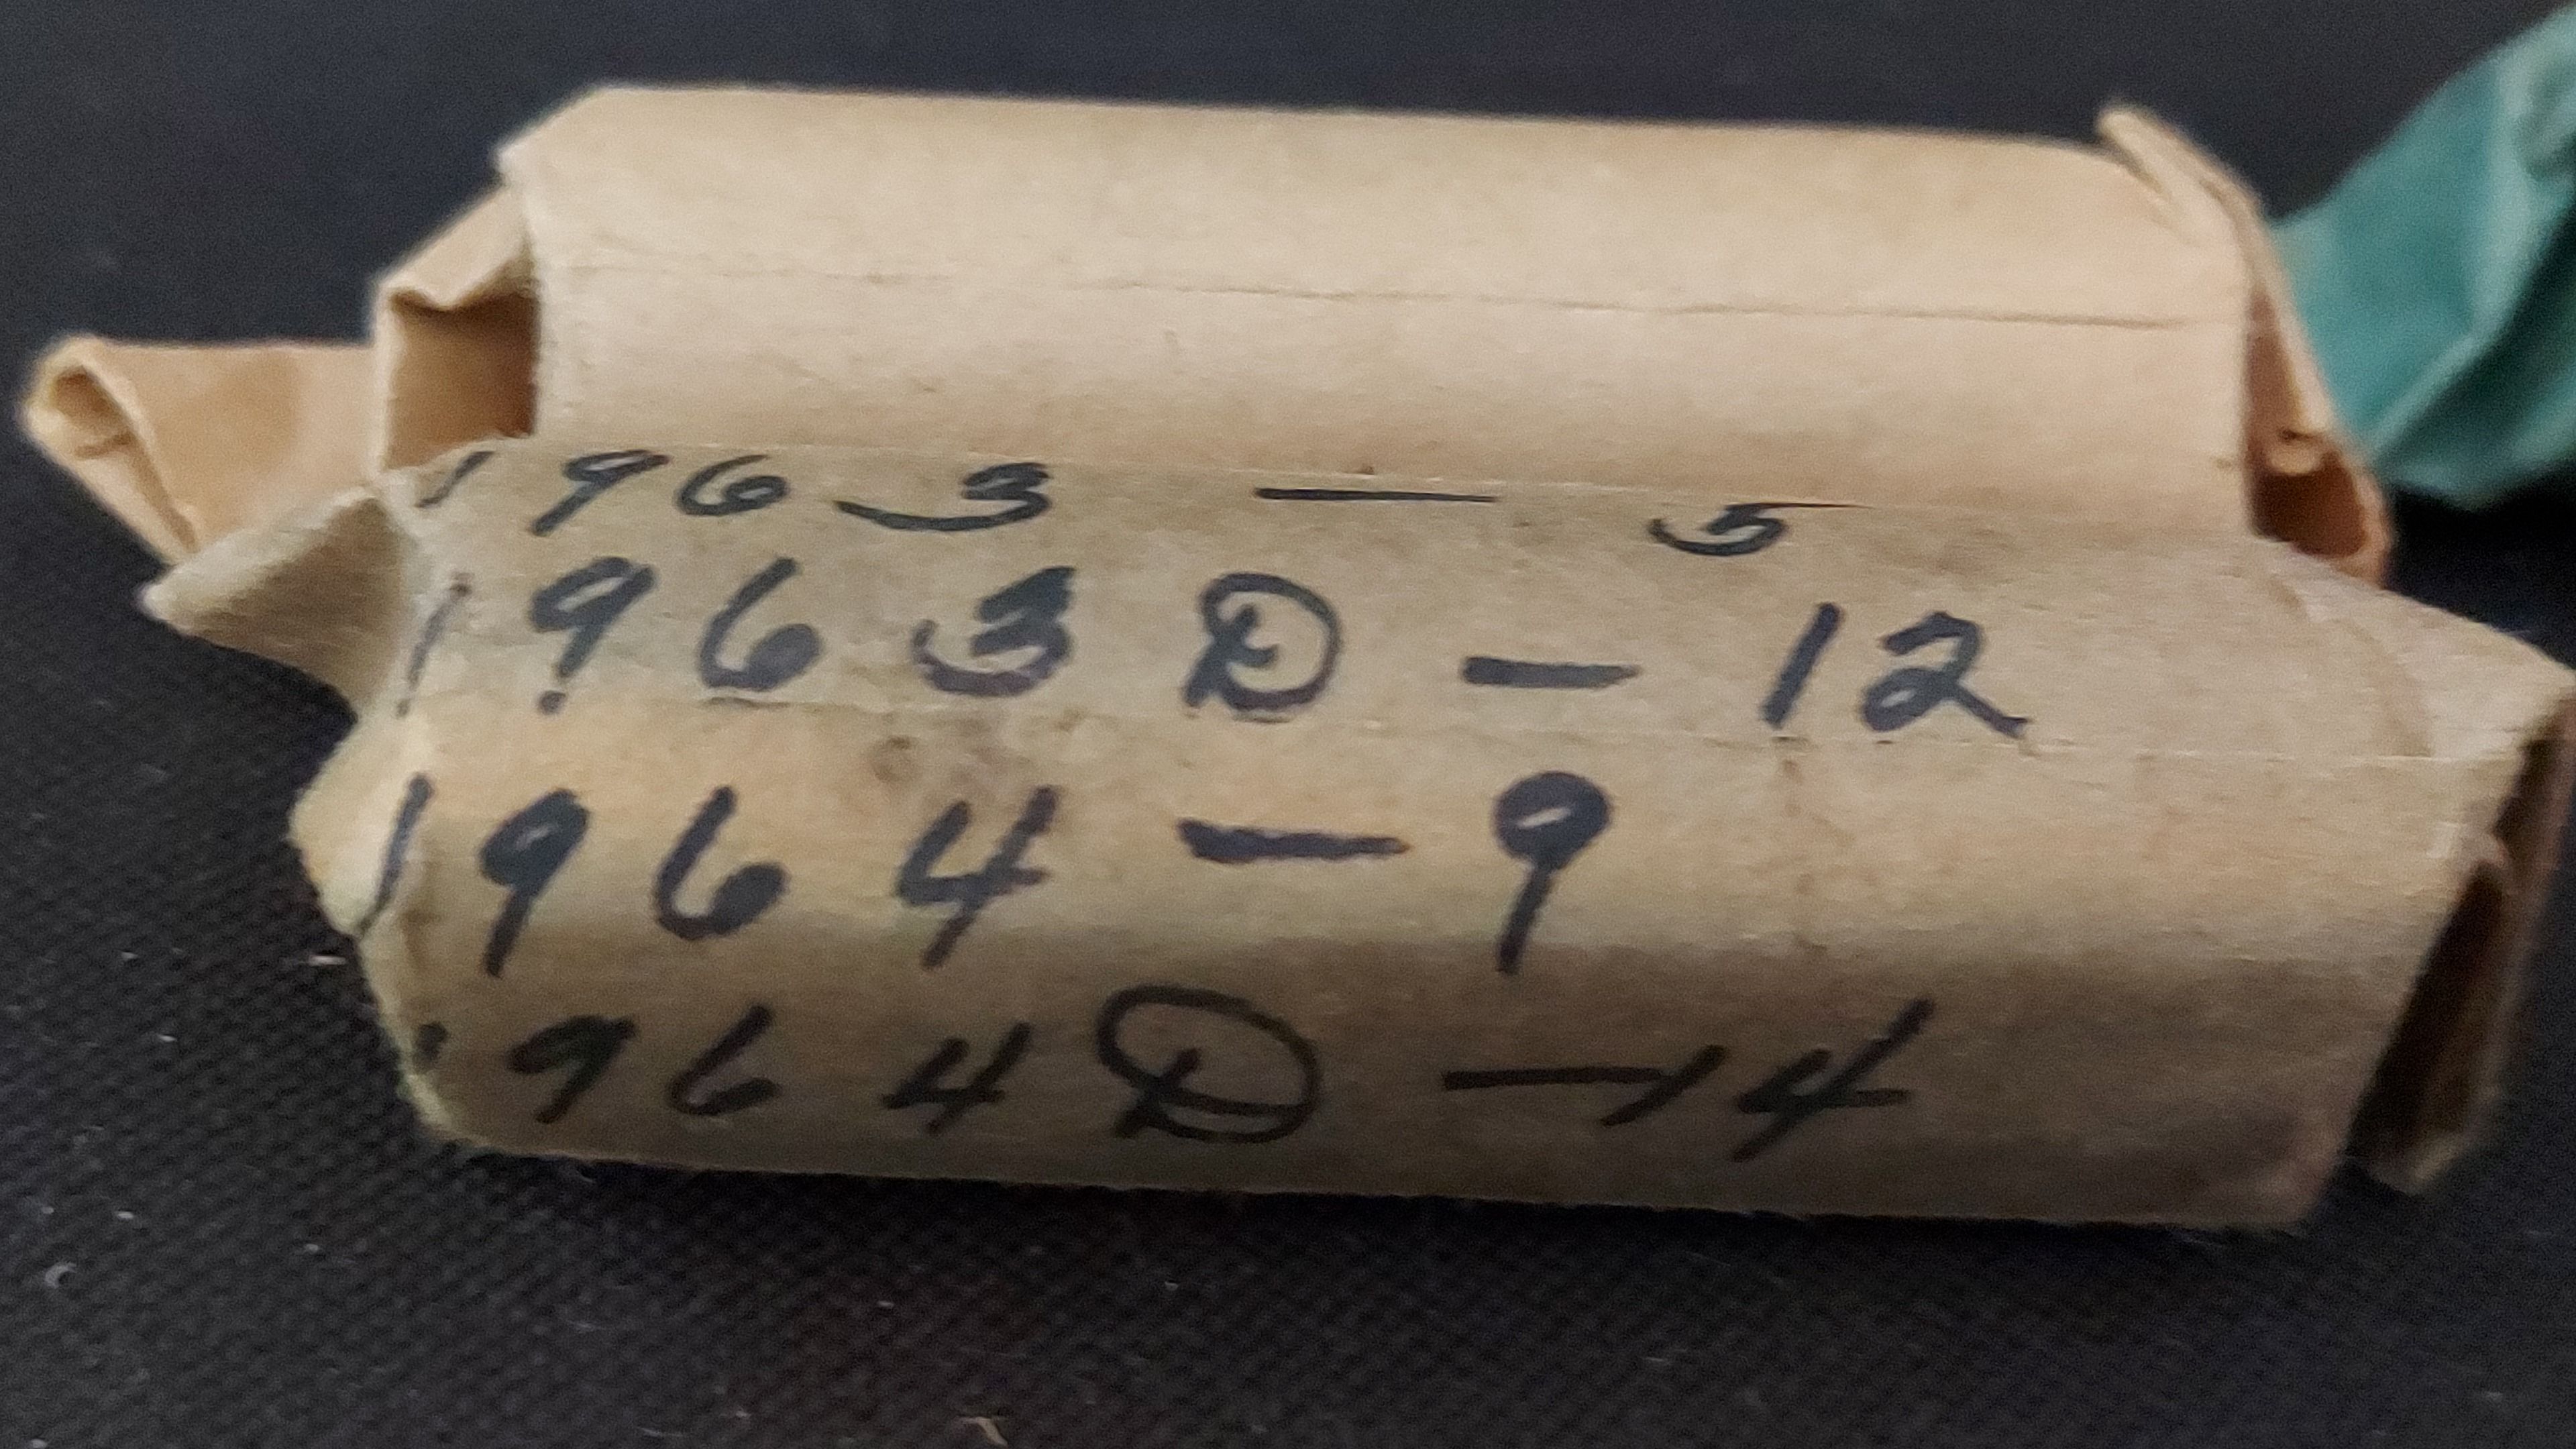 1963 — 5
1963D — 12
1964 — 9
1964D — 14